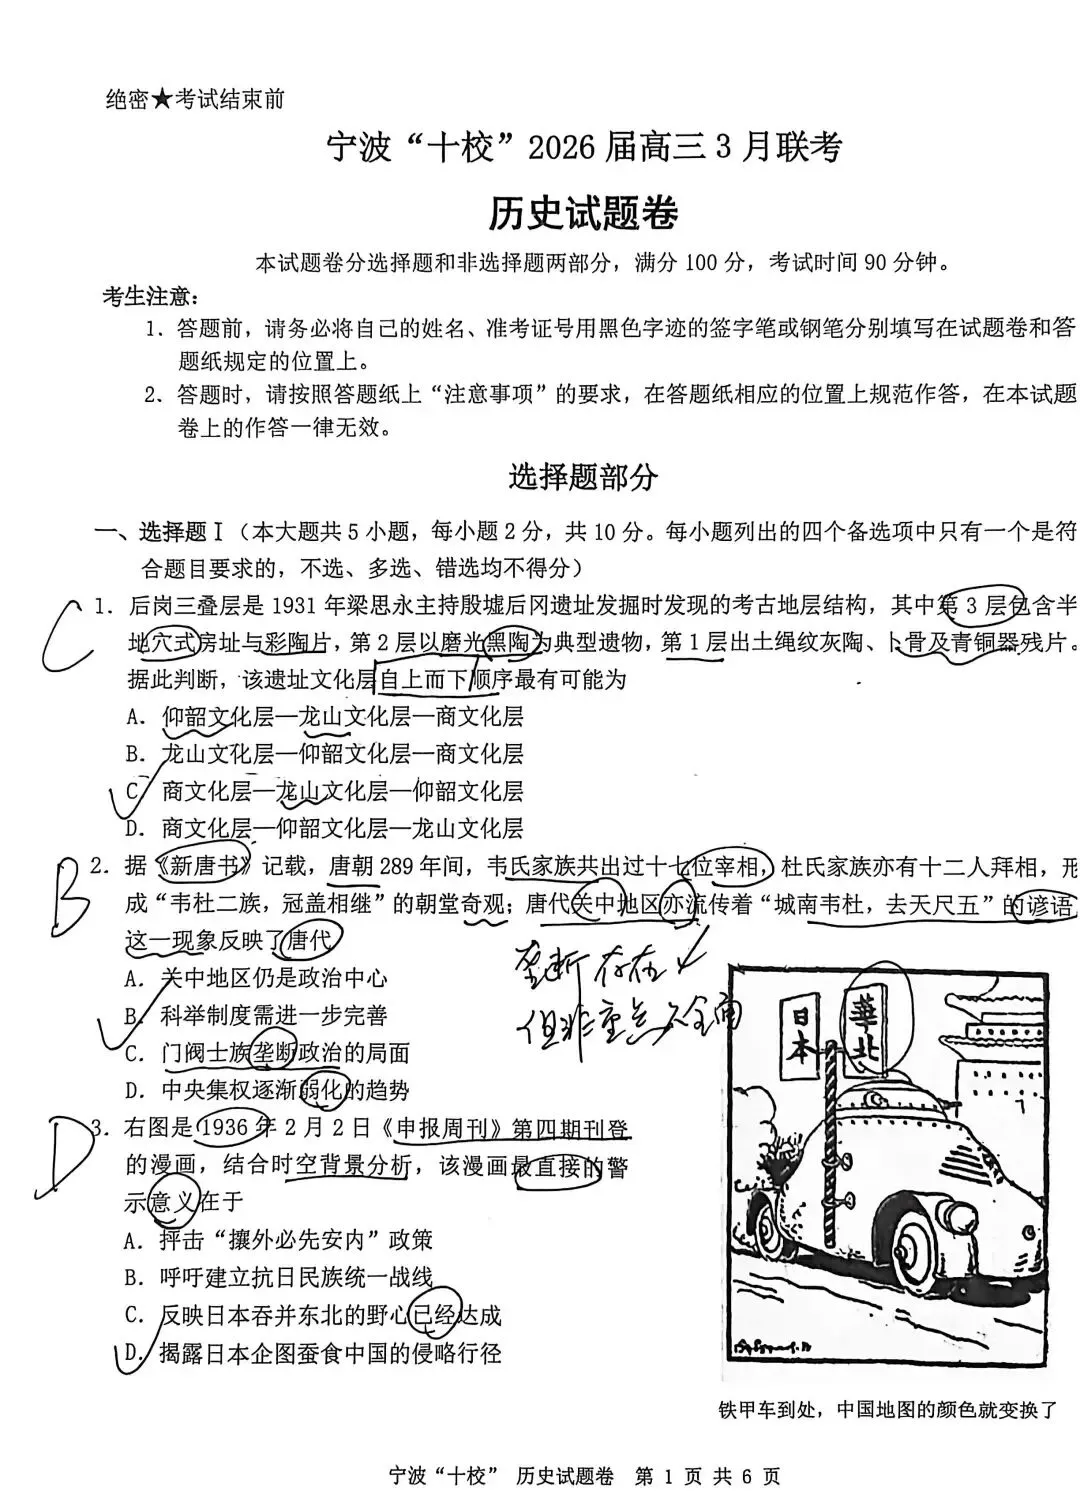 绝密★考试结束前
宁波“十校”2026届高三3月联考
历史试题卷
本试题卷分选择题和非选择题两部分，满分100分，考试时间90分钟。
考生注意：
1．答题前，请务必将自己的姓名、准考证号用黑色字迹的签字笔或钢笔分别填写在试题卷和答
题纸规定的位置上。
2．答题时，请按照答题纸上“注意事项”的要求，在答题纸相应的位置上规范作答，在本试题
卷上的作答一律无效。
选择题部分
一、选择题Ⅰ（本大题共5小题，每小题2分，共10分。每小题列出的四个备选项中只有一个是符
合题目要求的，不选、多选、错选均不得分）
C
1．后岗三叠层是1931年梁思永主持殷墟后冈遗址发掘时发现的考古地层结构，其中第3层包含半
地穴式房址与彩陶片，第2层以磨光黑陶为典型遗物，第1层出土绳纹灰陶、卜骨及青铜器残片。
据此判断，该遗址文化层自上而下顺序最有可能为
A．仰韶文化层—龙山文化层—商文化层
B．龙山文化层—仰韶文化层—商文化层
C．商文化层—龙山文化层—仰韶文化层
D．商文化层—仰韶文化层—龙山文化层
B
2．据《新唐书》记载，唐朝289年间，韦氏家族共出过十七位宰相，杜氏家族亦有十二人拜相，形
成“韦杜二族，冠盖相继”的朝堂奇观；唐代关中地区亦流传着“城南韦杜，去天尺五”的谚语
这一现象反映了唐代
A．关中地区仍是政治中心
B．科举制度需进一步完善
C．门阀士族垄断政治的局面
D．中央集权逐渐弱化的趋势
垄断存在✓
但非重点 不全面
D
3．右图是1936年2月2日《申报周刊》第四期刊登
的漫画，结合时空背景分析，该漫画最直接的警
示意义在于
A．抨击“攘外必先安内”政策
B．呼吁建立抗日民族统一战线
C．反映日本吞并东北的野心已经达成
D．揭露日本企图蚕食中国的侵略行径
日本
華北
铁甲车到处，中国地图的颜色就变换了
宁波“十校” 历史试题卷 第 1 页 共 6 页